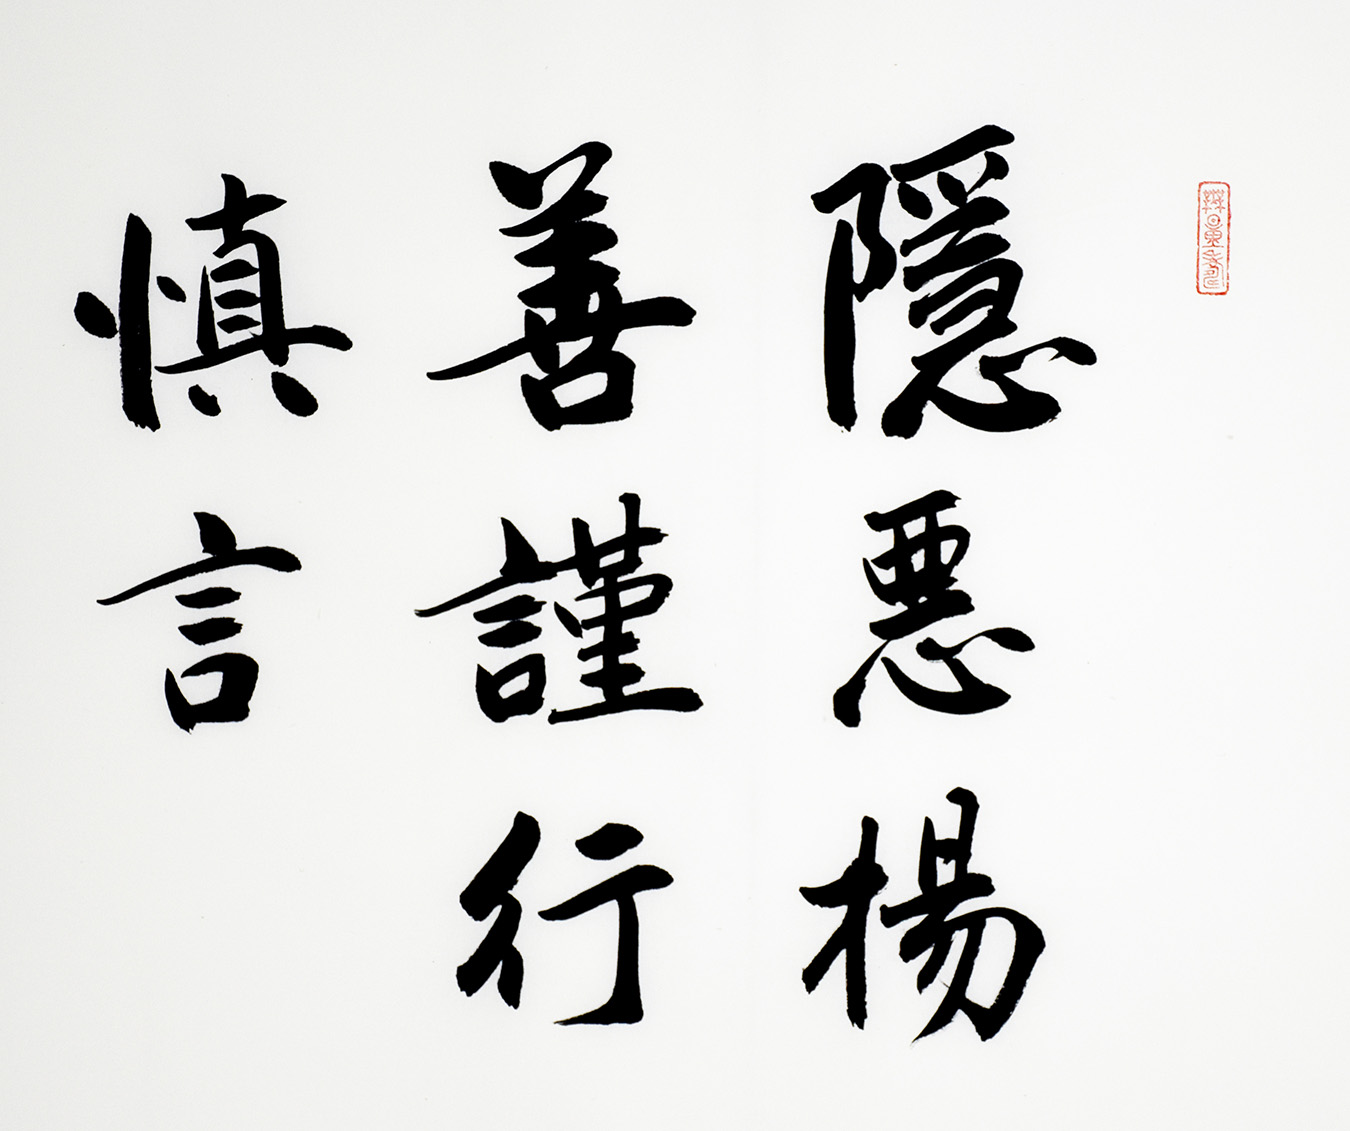 隱惡揚
善謹行
慎言